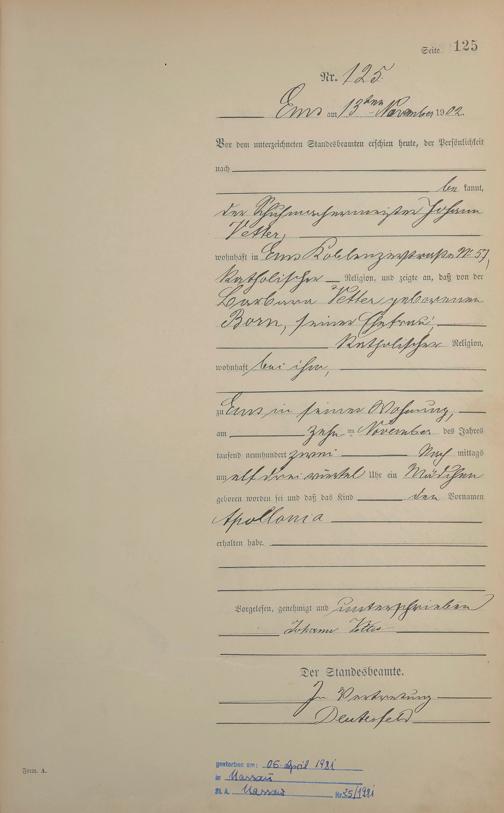 Seite 125
Nr. 125.
Ems am 13ten November 1902.
Vor dem unterzeichneten Standesbeamten erschien heute, der Persönlichkeit
nach
be kannt,
der Schuhmachermeister Johann
Vetter,
wohnhaft in Ems Koblenzerstraße No 57,
katholischer Religion, und zeigte an, daß von der
Barbara Vetter geborenen
Born, seiner Ehefrau,
katholischer Religion,
wohnhaft bei ihm,
zu Ems in seiner Wohnung,
am zehnten November des Jahres
tausend neunhundert zwei Nach mittags
um elf drei viertel Uhr ein Mädchen
geboren worden sei und daß das Kind den Vornamen
Apollonia
erhalten habe.
Vorgelesen, genehmigt und unterschrieben
Johann Vetter
Der Standesbeamte.
In Vertretung
gestorben am: 06. April 1981
in Nassau
St. A. Nassau Nr. 35/1981
Form. A.